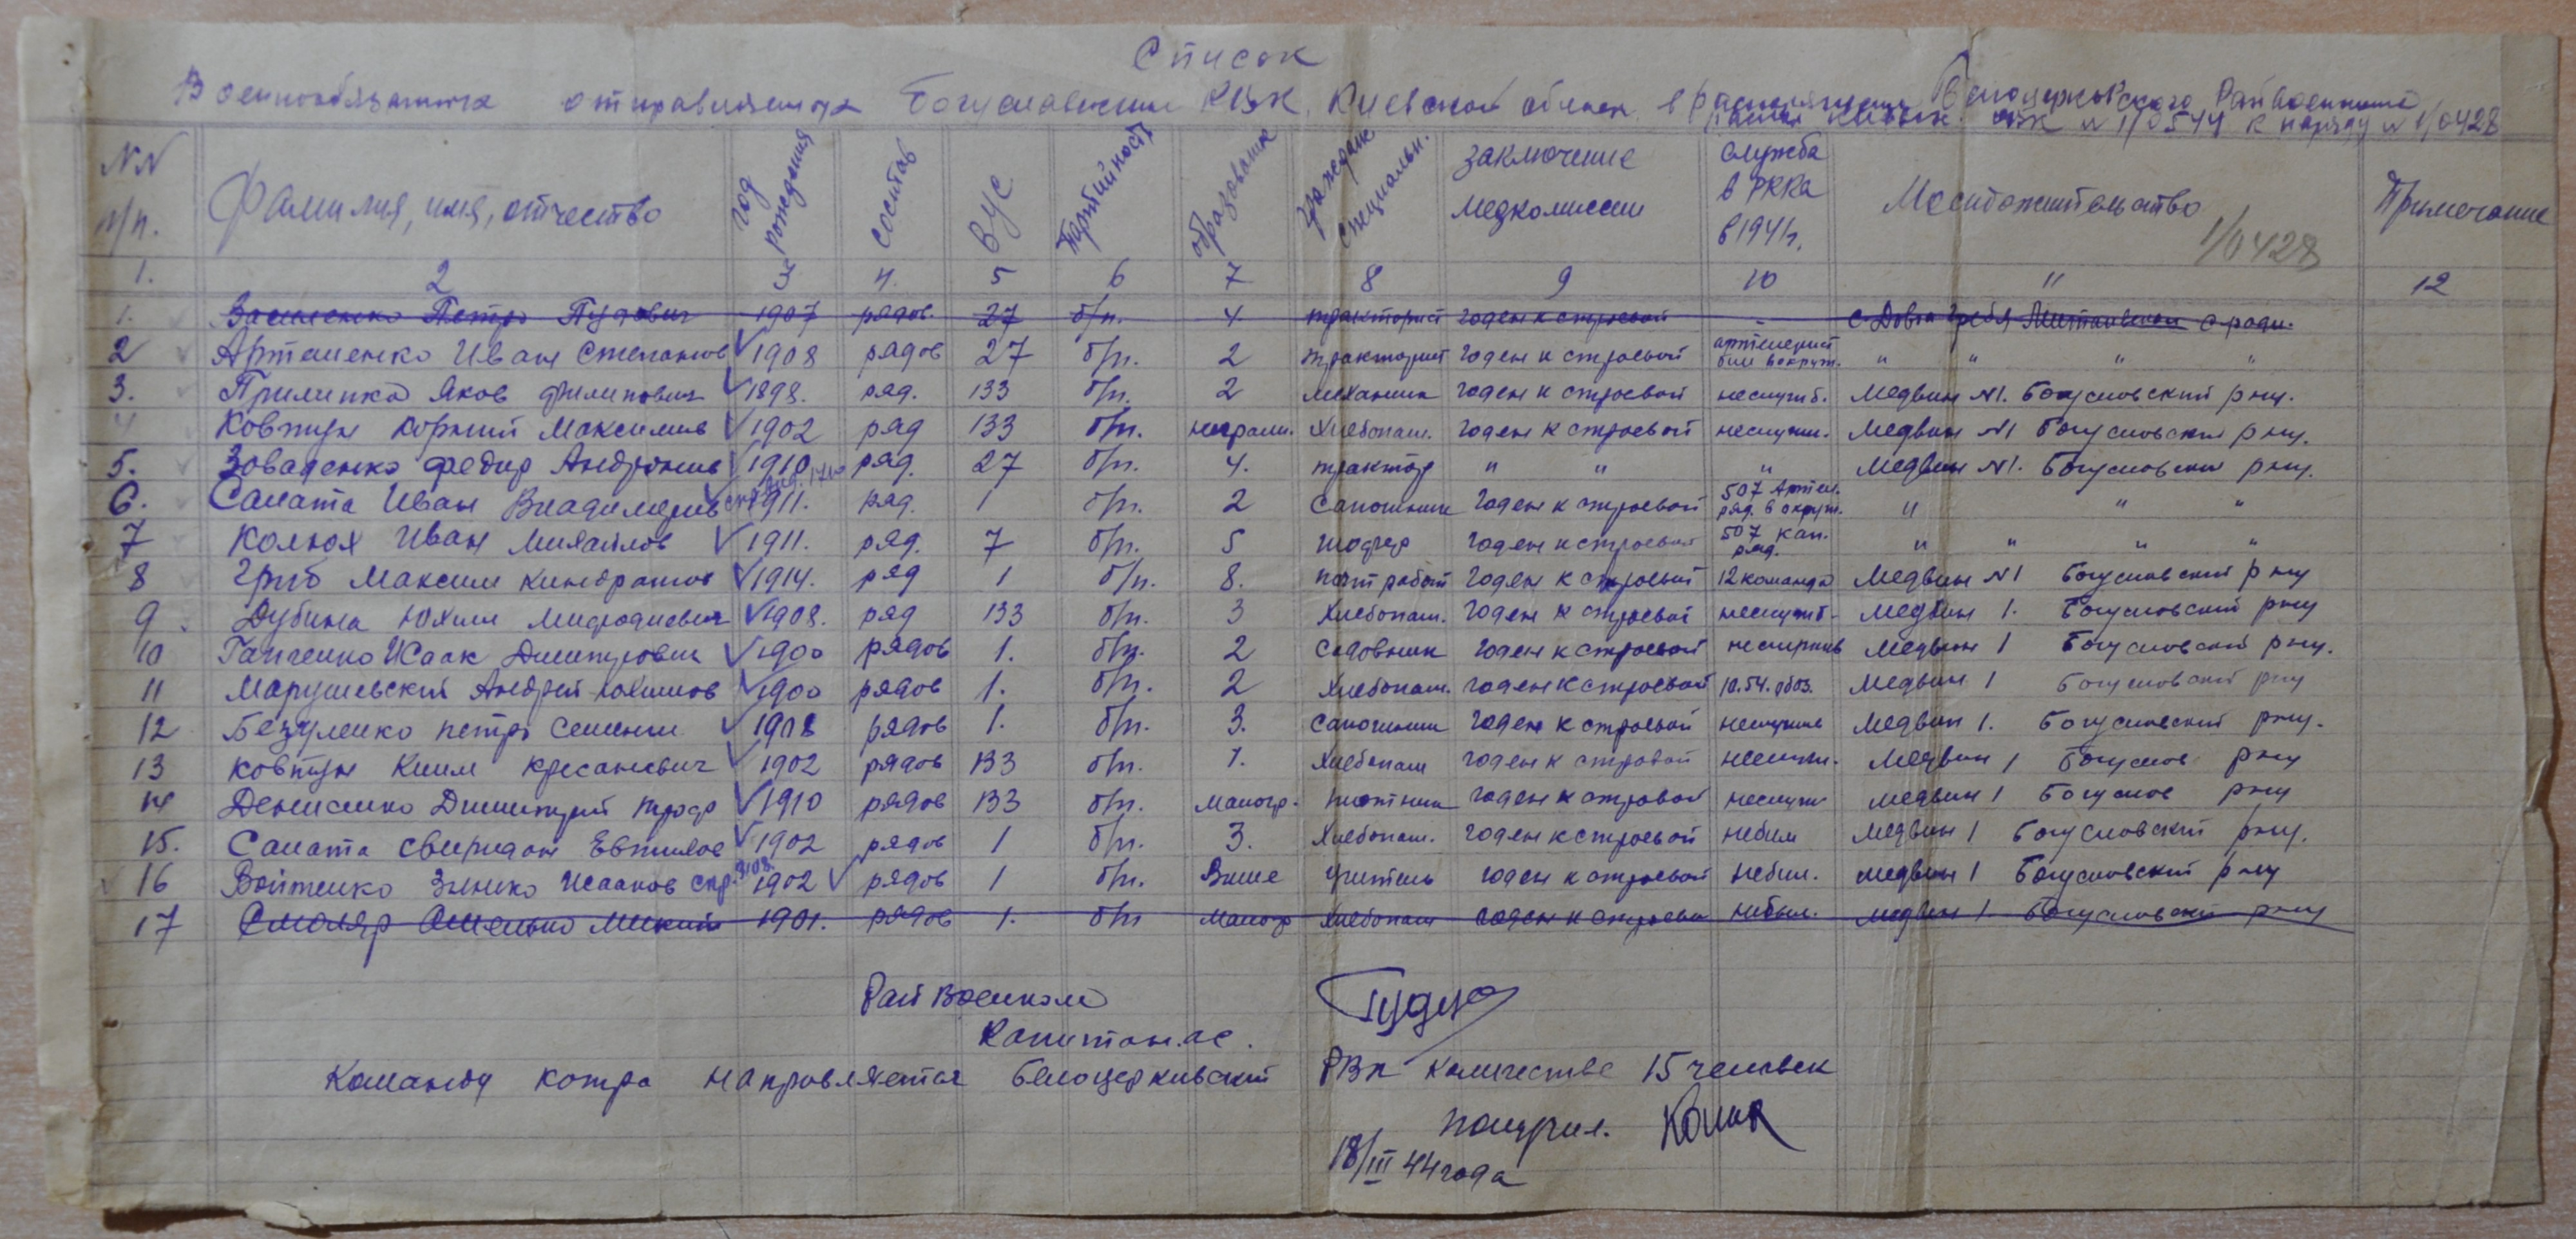 Список
Военнообязаных отправляемых Богуславским РВК. Киевской области в распоряжение Белоцерковского Райвоенкома
№ 1/0544 к наряду № 1/0428
№№ п/п. Фамилия, имя, отчество год рождения состав ВУС Партийность образование граждан специальн. заключение медкомиссии служба в РККА в 1941г. Местожительство Примечание
1/0428
1. 2 3 4. 5 6 7 8 9 10 11 12
1. Василенко Петро Пудович 1907 рядов. 27 б/п. 4 тракторист годен к строевой - с. Довга Гребля
2 Артеменко Иван Степанов 1908 рядов 27 б/п. 2 тракторист годен к строевой " " " "
3. Прилипко Яков Филипович 1898. ряд. 133 б/п. 2 механик годен к строевой неслужб. Медвин №1. Богусловский р-ну.
4 Ковтун Корний Максимов 1902 ряд 133 б/п. неграмн. Хлебопаш. годен к строевой неслужи. Медвин №1 Богусловский р-ну.
5. Федир Андронив 1910 ряд. 27 б/п. 4. трактор " " " Медвин №1. Богусловский р-ну.
6. Салата Иван Владимеров 1911. ряд. 1 б/п. 2 Сапожник годен к строевой 507 Артил. ряд. в окруж. " " "
7 Колюх Иван Михайлов 1911. ряд. 7 б/п. 5 шофер годен к строевой 507 кап. ряд. " " " "
8 Гриб Максим Киндратов 1914. ряд 1 б/п. 8. годен к строевой 12 команда Медвин №1 Богусловский р-ну
9. Дубина Юхим Мифодиевич 1908. ряд 133 б/п. 3 Хлебопаш. годен к строевой неслужб- Медвин 1. Богусловский р-ну
10 Исаак Дмитрович 1900 рядов 1. б/п. 2 Садовник годен к строевой Медвин 1 Богусловский р-ну.
11 Марушевский Андрей Юхимов 1900 рядов 1. б/п. 2 Хлебопаш. годен к строевой 10.54. обоз. Медвин 1 Богусловский р-ну
12 Петро Семенов 1908 рядов 1. б/п. 3. сапожник годен к строевой неслужив Медвин 1. Богусловский р-ну.
13 Ковтун Клим 1902 рядов 133 б/п. 1. Хлебопаш годен к стровой неслужи. Медвин 1 Богуслов р-ну
14 Денисенко Димитрий Троф 1910 рядов 133 б/п. малогр. плотник годен к стровой неслужи Медвин 1 Богуслов р-ну
15. Салата Свиридон Евтихов 1902 рядов 1 б/п. 3. Хлебопаш. годен к строевой небил Медвин 1 Богусловский р-ну.
16 Войтенко Зинько Исааков 1902 рядов 1 б/п. Више учитель годен к строевой небил. Медвин 1 Богусловский р-ну
17 Смоляр Омелько Микит 1901. рядов 1. б/п малогр Хлебопаш годен к строевой небил. Медвин 1. Богусловский р-ну
Рай Военком
Капитан ас.
Команду котра направляетья Белоцерковский РВК количестве 15 человек
получил.
18/III 44 года